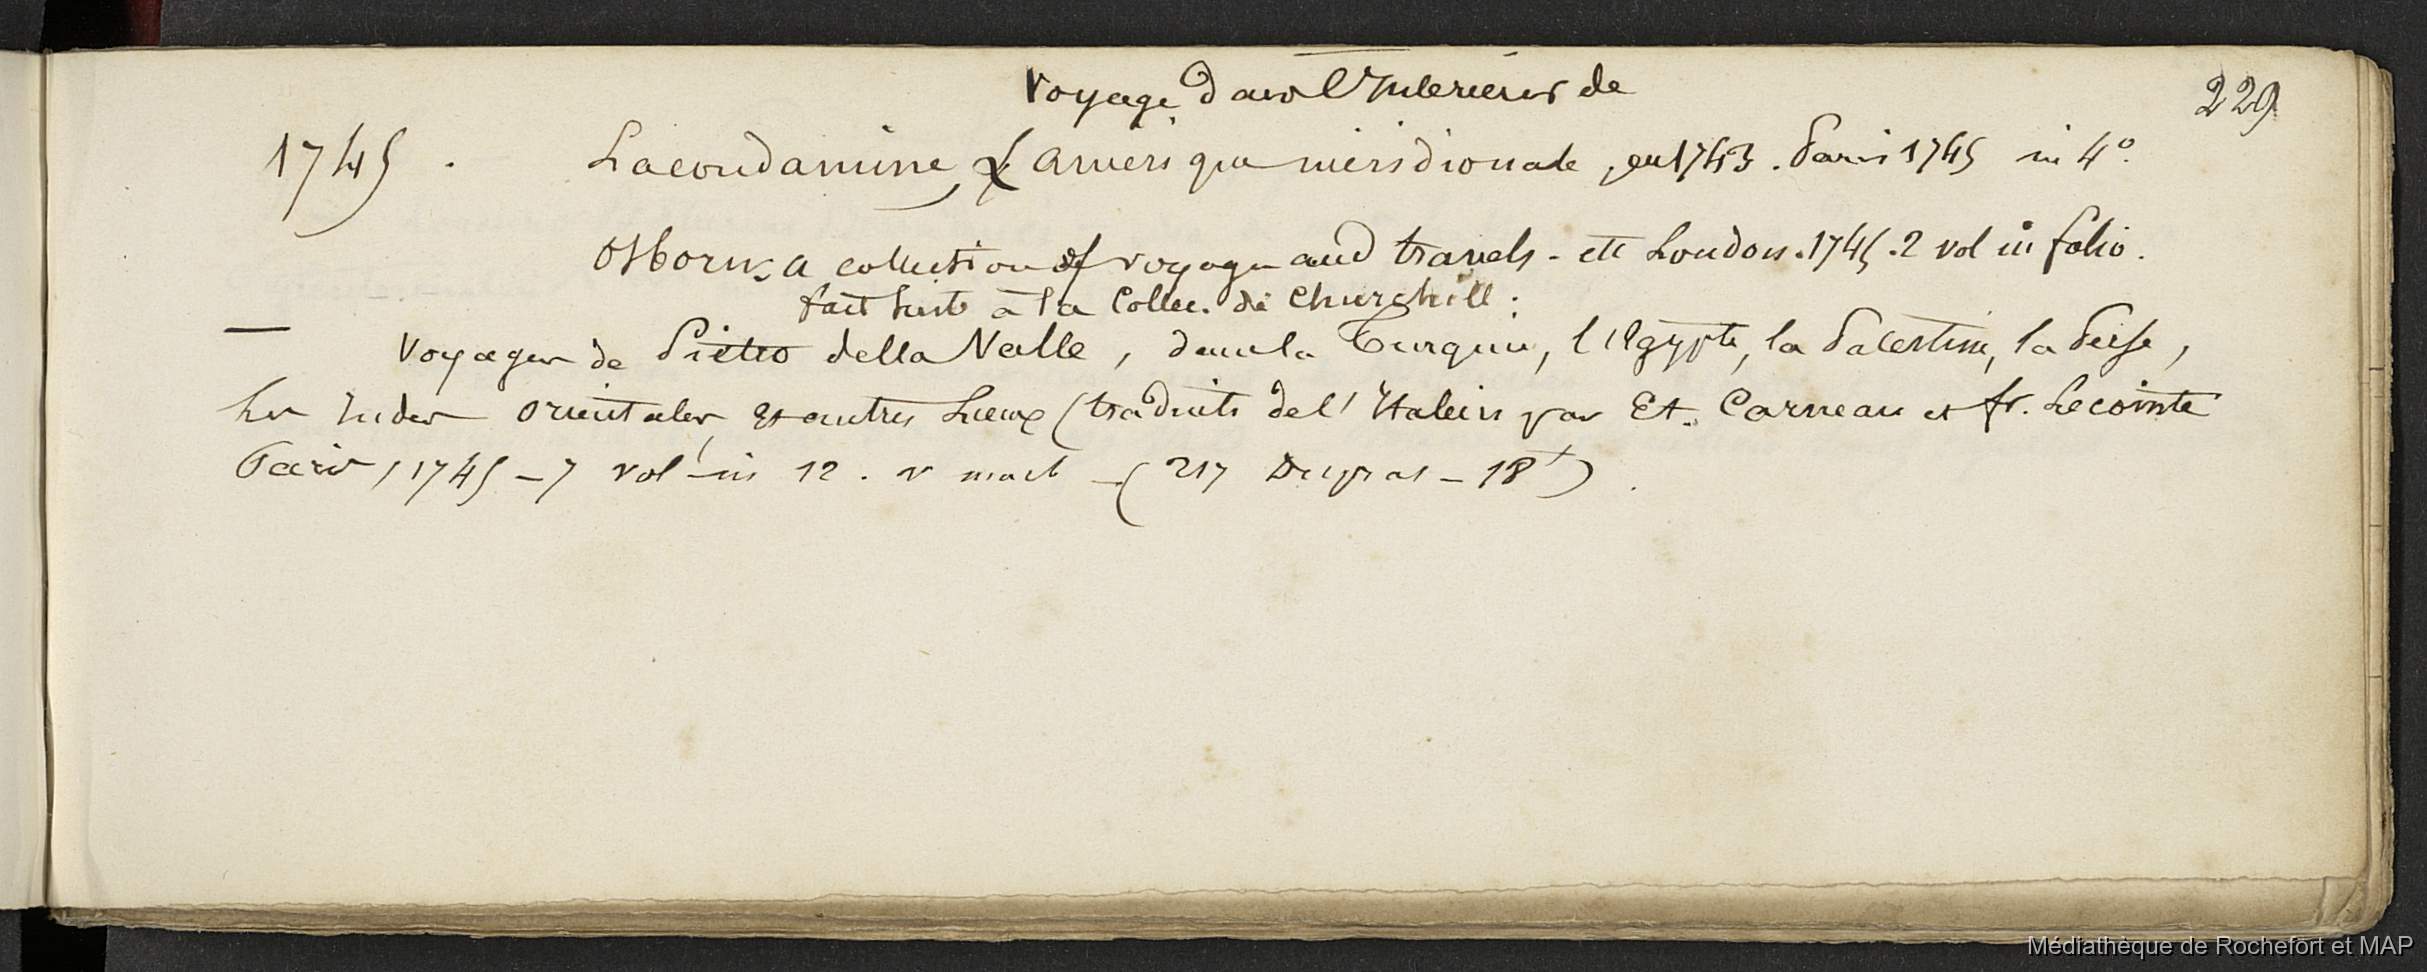 Voyage dans l'Interieur de
229
1745 . Lacondamine, L'Amerique meridionale, en 1743. Paris 1745 in 4°.
Osborn, a collection of voyages and travels - etc London. 1745. 2 vol in folio.
fait suite à la Collec. de Churchill.
— Voyages de Pietro della Valle, dans la Turquie, l'Egypte, la Palestine, la Perse,
les Indes orientales, et autres Lieux (traduits de l'Italien par Et. Carneau et fr. Lecointe
Paris, 1745 - 7 vol in 12. v - (217 Duprat - 18
Médiathèque de Rochefort et MAP